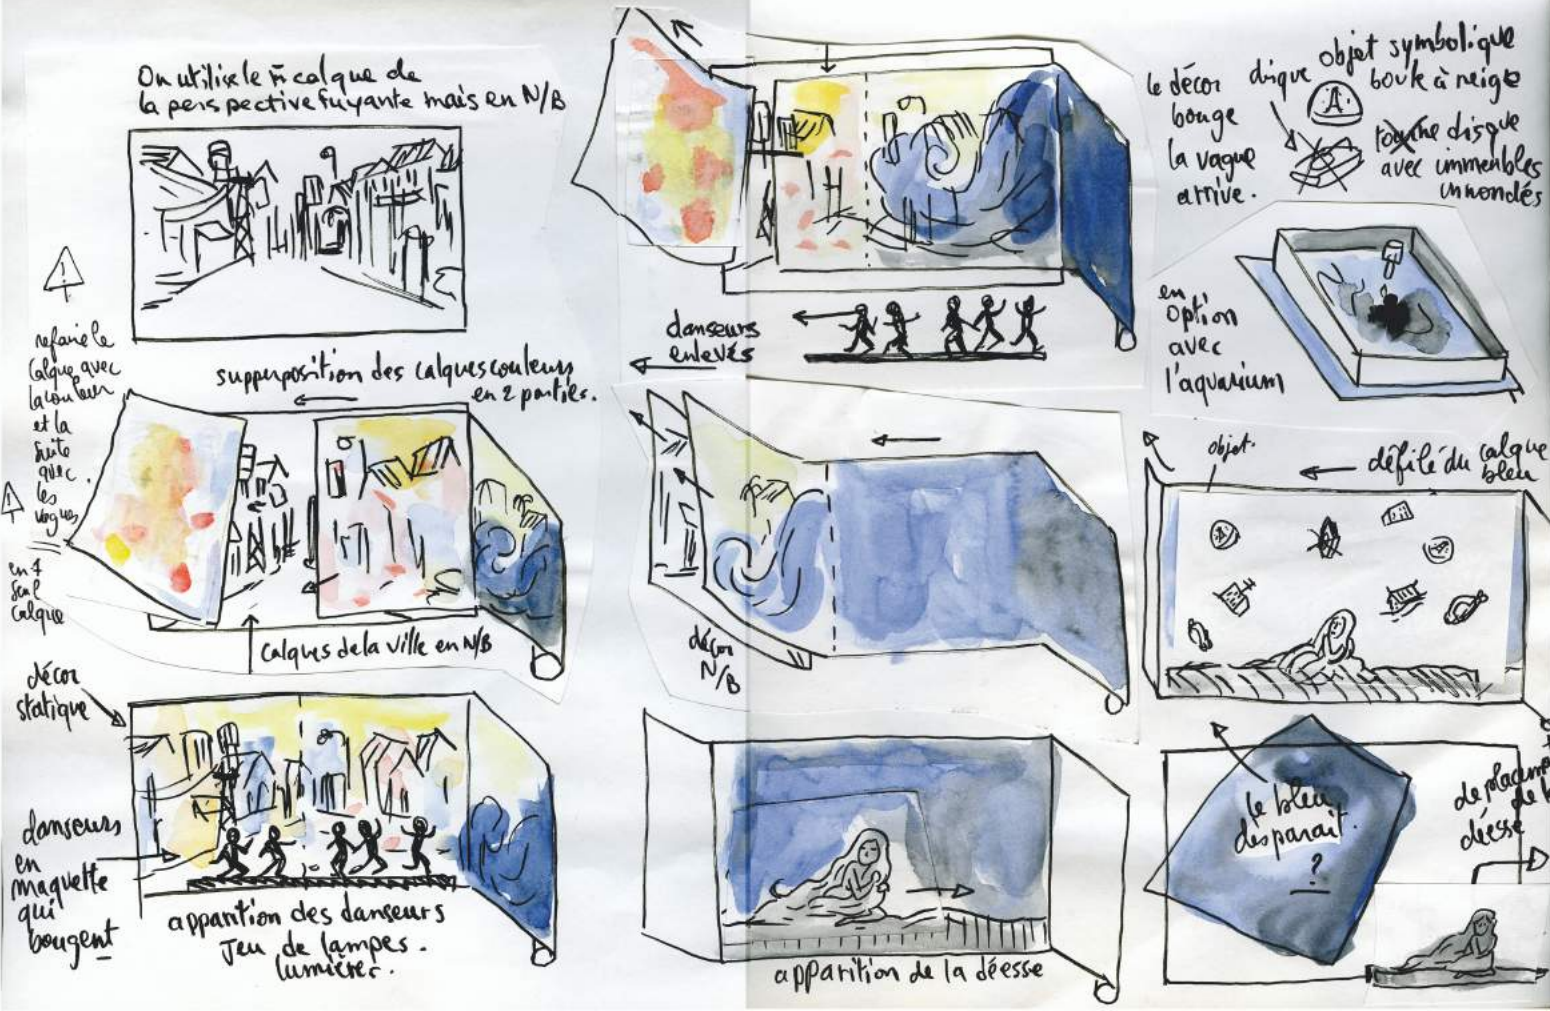 On utilise le m̄ calque de
la perspective fuyante mais en N/B
refaire le
calque avec
la couleur
et la
suite
avec
les
vagues
en 1
seul
calque
suppurposition des calques couleurs
en 2 parties.
calques de la ville en N/B
décor
statique
danseurs
en
maquette
qui
bougent
apparition des danseurs
jeu de lampes.
lumières.
danseurs
enlevés
décor
N/B
apparition de la déesse
le décor
bouge
la vague
arrive.
disque
objet symbolique
boule à neige
A
tourne disque
avec immeubles
innondés
en
option
avec
l'aquarium
objet.
défilé du calque
bleu
le bleu
disparait.
?
déesse